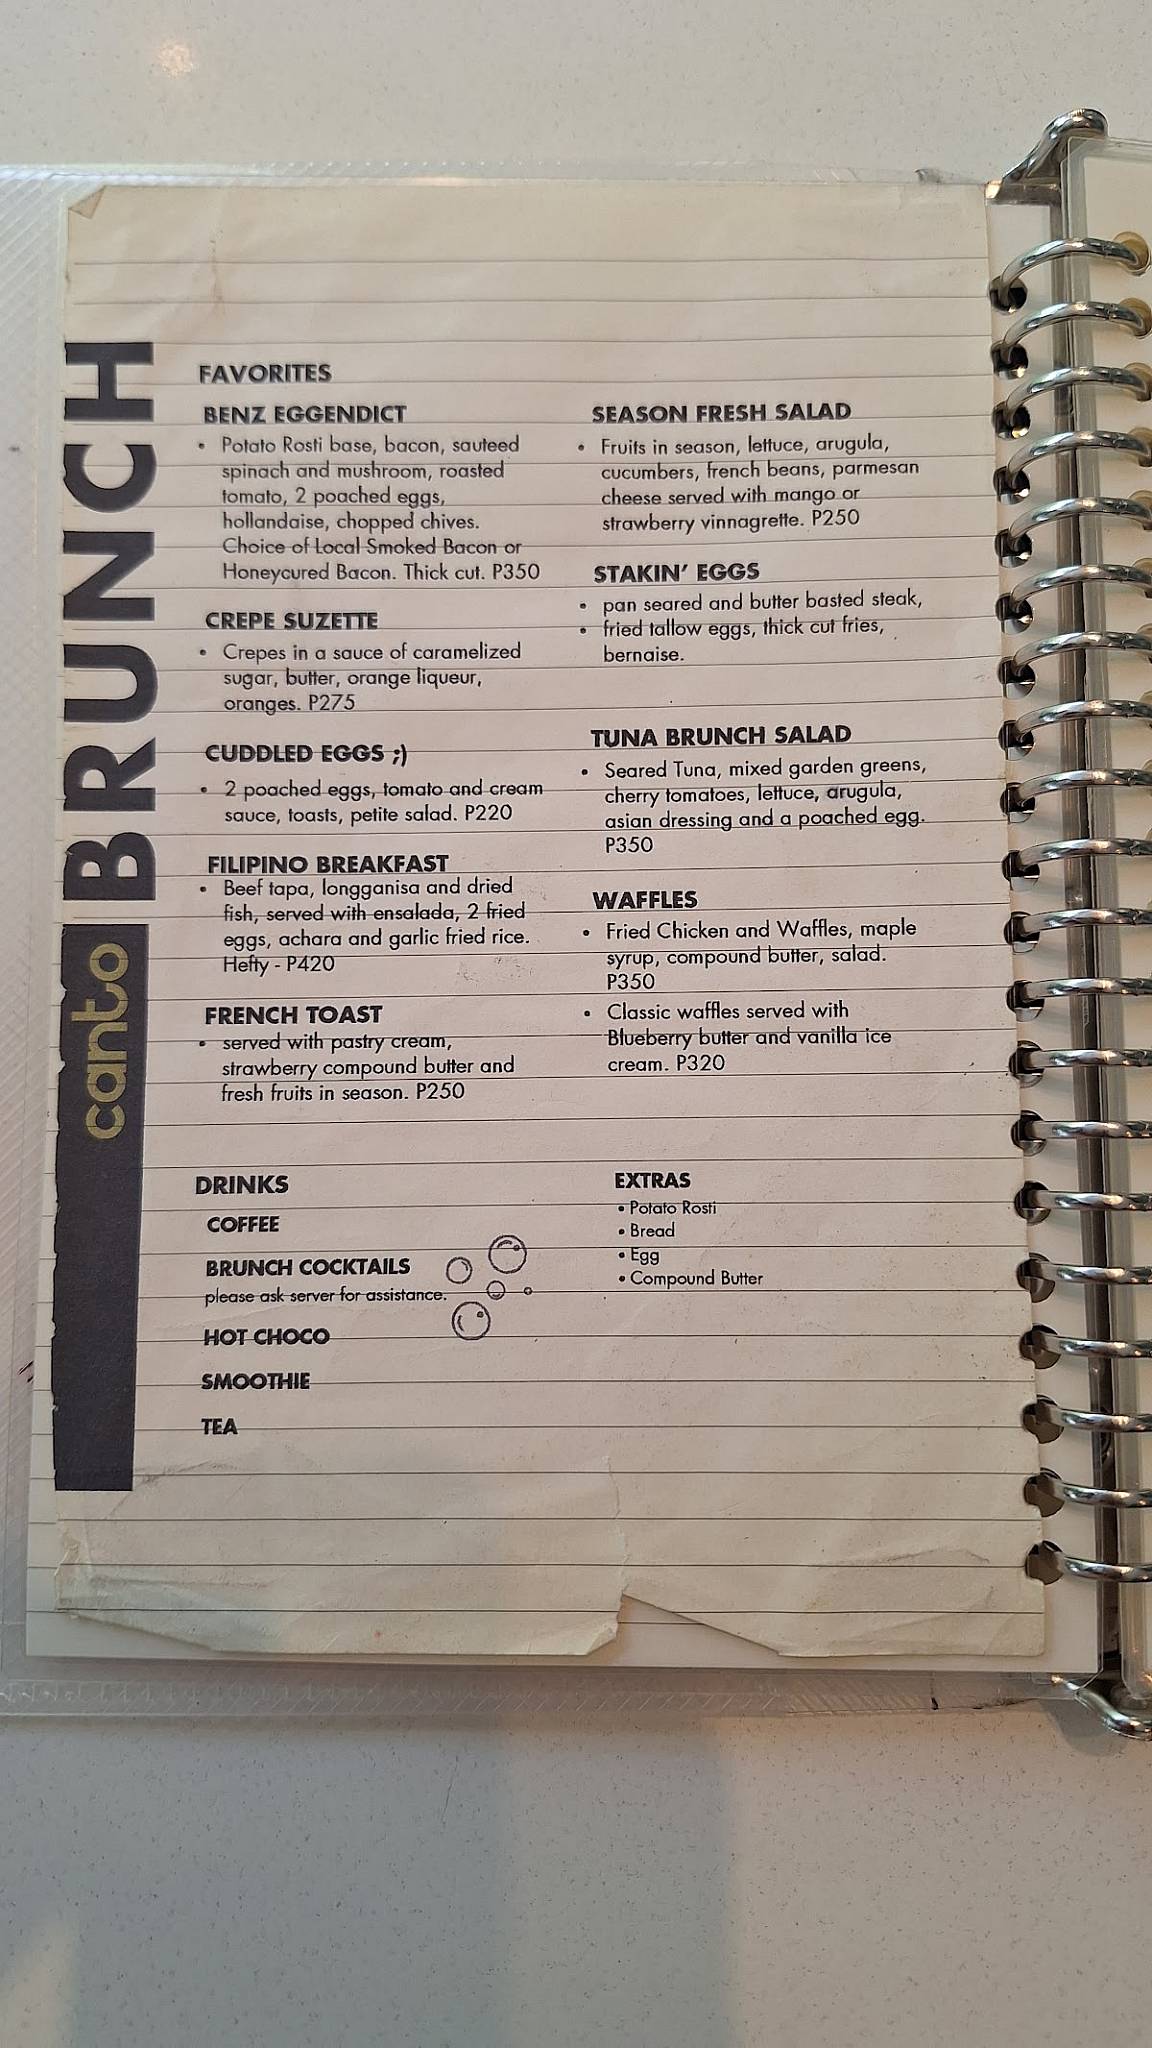 BRUNCH
canto
FAVORITES
BENZ EGGENDICT
• Potato Rosti base, bacon, sauteed
spinach and mushroom, roasted
tomato, 2 poached eggs,
hollandaise, chopped chives.
Choice of Local Smoked Bacon or
Honeycured Bacon. Thick cut. P350
CREPE SUZETTE
• Crepes in a sauce of caramelized
sugar, butter, orange liqueur,
oranges. P275
CUDDLED EGGS ;)
• 2 poached eggs, tomato and cream
sauce, toasts, petite salad. P220
FILIPINO BREAKFAST
• Beef tapa, longganisa and dried
fish, served with ensalada, 2 fried
eggs, achara and garlic fried rice.
Hefty - P420
FRENCH TOAST
• served with pastry cream,
strawberry compound butter and
fresh fruits in season. P250
SEASON FRESH SALAD
• Fruits in season, lettuce, arugula,
cucumbers, french beans, parmesan
cheese served with mango or
strawberry vinnagrette. P250
STAKIN' EGGS
• pan seared and butter basted steak,
• fried tallow eggs, thick cut fries,
bernaise.
TUNA BRUNCH SALAD
• Seared Tuna, mixed garden greens,
cherry tomatoes, lettuce, arugula,
asian dressing and a poached egg.
P350
WAFFLES
• Fried Chicken and Waffles, maple
syrup, compound butter, salad.
P350
• Classic waffles served with
Blueberry butter and vanilla ice
cream. P320
DRINKS
COFFEE
BRUNCH COCKTAILS
please ask server for assistance.
HOT CHOCO
SMOOTHIE
TEA
EXTRAS
• Potato Rosti
• Bread
• Egg
• Compound Butter